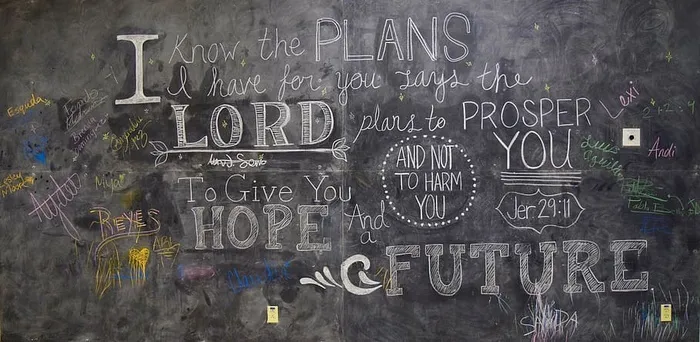 I Know the PLANS
I have for you says the
LORD plans to PROSPER
YOU
AND NOT
TO HARM
YOU
Jer 29:11
To Give You
HOPE And
a
FUTURE.
Esqueda
Lexi
Andi
Myla
REYES
SANDRA